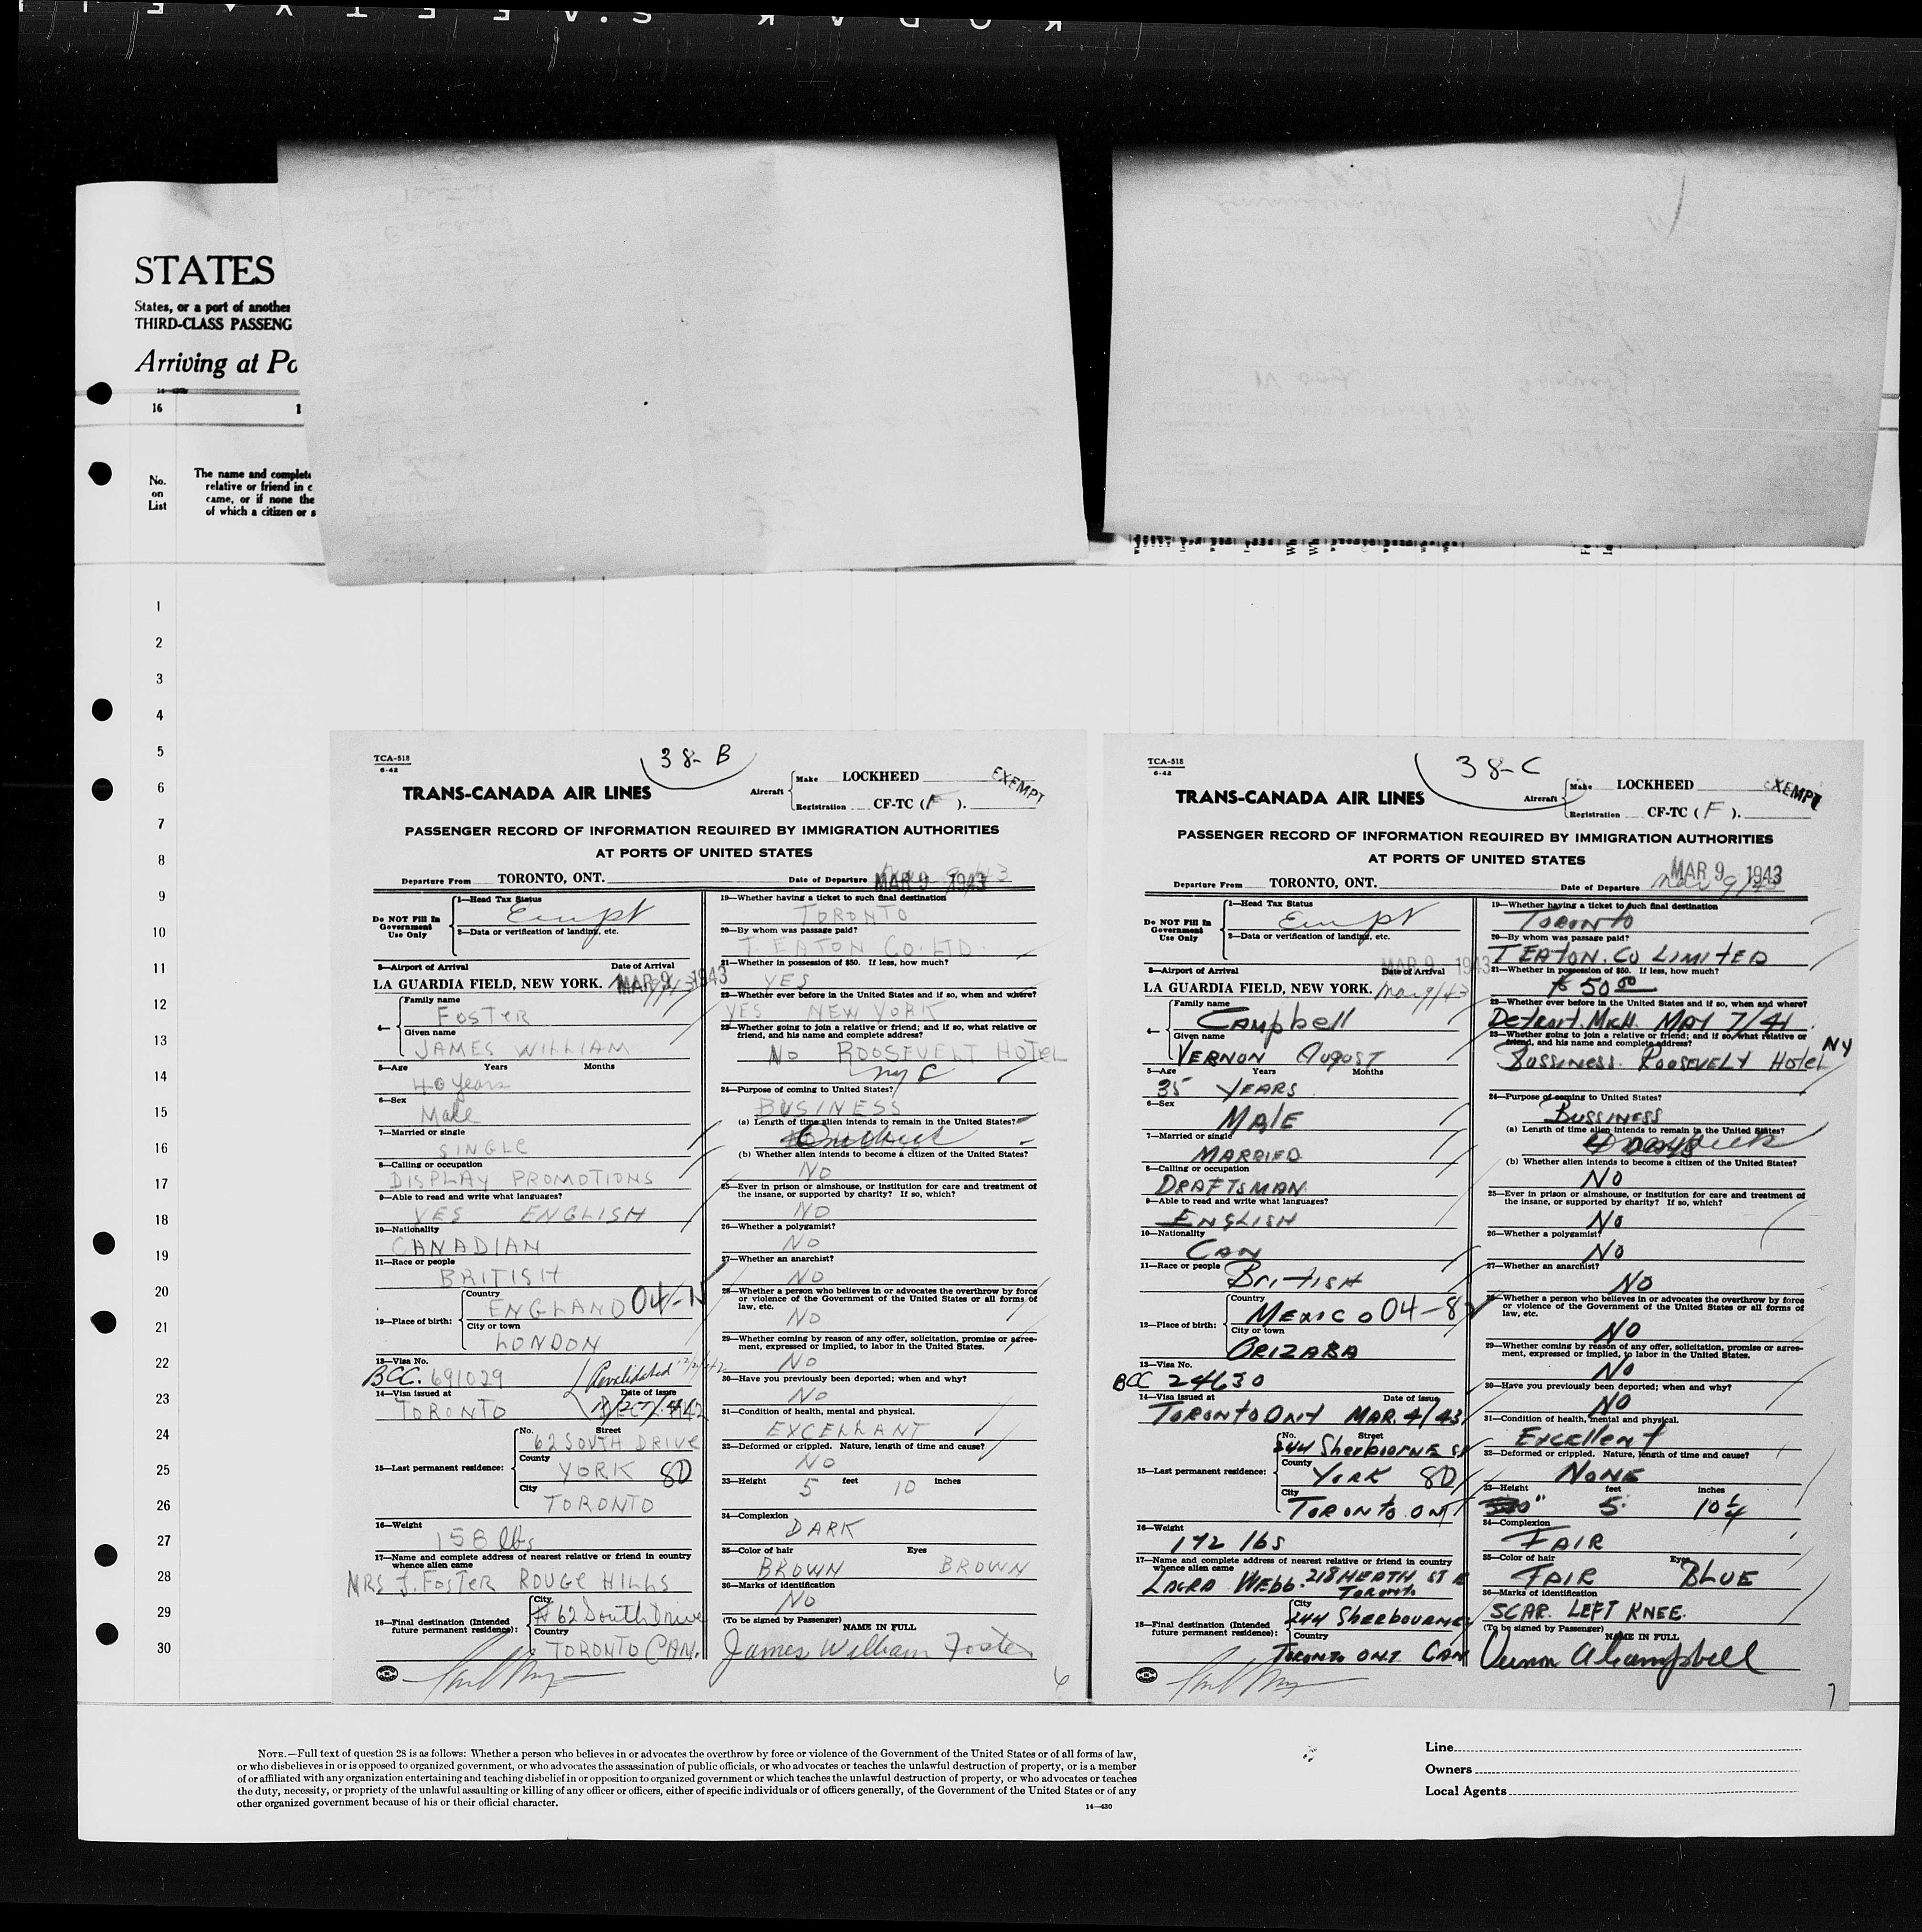 KODAK S.A.F.E.T.Y.
STATES
States, or a port of another
THIRD-CLASS PASSENG
Arriving at Po
16
No.
on
List
The name and complete
relative or friend in c
came, or if none the
of which a citizen or s
1
2
3
4
5
6
7
8
9
10
11
12
13
14
15
16
17
18
19
20
21
22
23
24
25
26
27
28
29
30
TCA-518
6-42
38-B
TRANS-CANADA AIR LINES
Aircraft
Make LOCKHEED
Registration CF-TC (F).
EXEMPT
PASSENGER RECORD OF INFORMATION REQUIRED BY IMMIGRATION AUTHORITIES
AT PORTS OF UNITED STATES
Departure From TORONTO, ONT. Date of Departure MAR 9 1943
Do NOT Fill In
Government
Use Only
1—Head Tax Status
Exmpt
2—Data or verification of landing, etc.
3—Airport of Arrival Date of Arrival
LA GUARDIA FIELD, NEW YORK. MAR 9 1943
4—
Family name
FOSTER
Given name
JAMES WILLIAM
5—Age Years Months
40 years
6—Sex
Male
7—Married or single
SINGLE
8—Calling or occupation
DISPLAY PROMOTIONS
9—Able to read and write what languages?
YES ENGLISH
10—Nationality
CANADIAN
11—Race or people
BRITISH
12—Place of birth:
Country
ENGLAND 04-1
City or town
LONDON
13—Visa No.
BCC. 691029 Revalidated
14—Visa issued at Date of issue
TORONTO
15—Last permanent residence:
No. Street
62 SOUTH DRIVE
County
YORK 80
City
TORONTO
16—Weight
158 lbs
17—Name and complete address of nearest relative or friend in country
whence alien came
MRS J. FOSTER ROUGE HILLS
18—Final destination (Intended
future permanent residence):
City
62 South Drive
Country
TORONTO CAN.
19—Whether having a ticket to such final destination
TORONTO
20—By whom was passage paid?
T. EATON CO. LTD.
21—Whether in possession of $50. If less, how much?
YES
22—Whether ever before in the United States and if so, when and where?
YES NEW YORK
23—Whether going to join a relative or friend; and if so, what relative or
friend, and his name and complete address?
NO ROOSEVELT HOTEL
NYC
24—Purpose of coming to United States?
BUSINESS
(a) Length of time alien intends to remain in the United States?
(b) Whether alien intends to become a citizen of the United States?
NO
25—Ever in prison or almshouse, or institution for care and treatment of
the insane, or supported by charity? If so, which?
NO
26—Whether a polygamist?
NO
27—Whether an anarchist?
NO
28—Whether a person who believes in or advocates the overthrow by force
or violence of the Government of the United States or all forms of
law, etc.
NO
29—Whether coming by reason of any offer, solicitation, promise or agree-
ment, expressed or implied, to labor in the United States.
NO
30—Have you previously been deported; when and why?
NO
31—Condition of health, mental and physical.
EXCELLANT
32—Deformed or crippled. Nature, length of time and cause?
NO
33—Height 5 feet 10 inches
34—Complexion
DARK
35—Color of hair Eyes
BROWN BROWN
36—Marks of identification
NO
(To be signed by Passenger) NAME IN FULL
James William Foster
6
TCA-518
6-42
38-C
TRANS-CANADA AIR LINES
Aircraft
Make LOCKHEED
Registration CF-TC (F ).
EXEMPT
PASSENGER RECORD OF INFORMATION REQUIRED BY IMMIGRATION AUTHORITIES
AT PORTS OF UNITED STATES
Departure From TORONTO, ONT. Date of Departure MAR 9 1943
Mar 9/43
Do NOT Fill In
Government
Use Only
1—Head Tax Status
Exmpt
2—Data or verification of landing, etc.
MAR 9 1943
3—Airport of Arrival Date of Arrival
LA GUARDIA FIELD, NEW YORK. Mar 9/43
4—
Family name
Campbell
Given name
VERNON August
5—Age Years Months
35 YEARS
6—Sex
MAlE
7—Married or single
MARRIED
8—Calling or occupation
DRAFTSMAN
9—Able to read and write what languages?
ENGLISH
10—Nationality
CAN
11—Race or people
British
12—Place of birth:
Country
MEXICO 04-8
City or town
ORIZABA
13—Visa No.
BCC 24630
14—Visa issued at Date of issue
TORONTO ONT MAR. 4/43
15—Last permanent residence:
No. Street
244 Sherbourne St
County
YORK 80
City
TORONTO. ONT
16—Weight
172 lbs
17—Name and complete address of nearest relative or friend in country
whence alien came
LAURA WEBB. 218 HEATH ST E
TORONTO
18—Final destination (Intended
future permanent residence):
City
244 SHERBOURNE
Country
TORONTO ONT. CAN
19—Whether having a ticket to such final destination
TORONTO
20—By whom was passage paid?
T EATON. CO LIMITED
21—Whether in possession of $50. If less, how much?
$ 50 00
22—Whether ever before in the United States and if so, when and where?
Detroit. Mich. MAY 7/41.
23—Whether going to join a relative or friend; and if so, what relative or
friend, and his name and complete address?
BUSSINESS. ROOSEVELT HOTEL NY
24—Purpose of coming to United States?
BUSSINESS
(a) Length of time alien intends to remain in the United States?
(b) Whether alien intends to become a citizen of the United States?
NO
25—Ever in prison or almshouse, or institution for care and treatment of
the insane, or supported by charity? If so, which?
NO
26—Whether a polygamist?
NO
27—Whether an anarchist?
NO
28—Whether a person who believes in or advocates the overthrow by force
or violence of the Government of the United States or all forms of
law, etc.
NO
29—Whether coming by reason of any offer, solicitation, promise or agree-
ment, expressed or implied, to labor in the United States.
NO
30—Have you previously been deported; when and why?
NO
31—Condition of health, mental and physical.
Excellent
32—Deformed or crippled. Nature, length of time and cause?
NONE
33—Height feet inches
5 10 1/4
34—Complexion
FAIR
35—Color of hair Eyes
FAIR BLUE
36—Marks of identification
SCAR. LEFT KNEE.
(To be signed by Passenger) NAME IN FULL
Vernon A Campbell
7
NOTE.—Full text of question 28 is as follows: Whether a person who believes in or advocates the overthrow by force or violence of the Government of the United States or of all forms of law,
or who disbelieves in or is opposed to organized government, or who advocates the assassination of public officials, or who advocates or teaches the unlawful destruction of property, or is a member
of or affiliated with any organization entertaining and teaching disbelief in or opposition to organized government or which teaches the unlawful destruction of property, or who advocates or teaches
the duty, necessity, or propriety of the unlawful assaulting or killing of any officer or officers, either of specific individuals or of officers generally, of the Government of the United States or of any
other organized government because of his or their official character.
14—430
Line
Owners
Local Agents